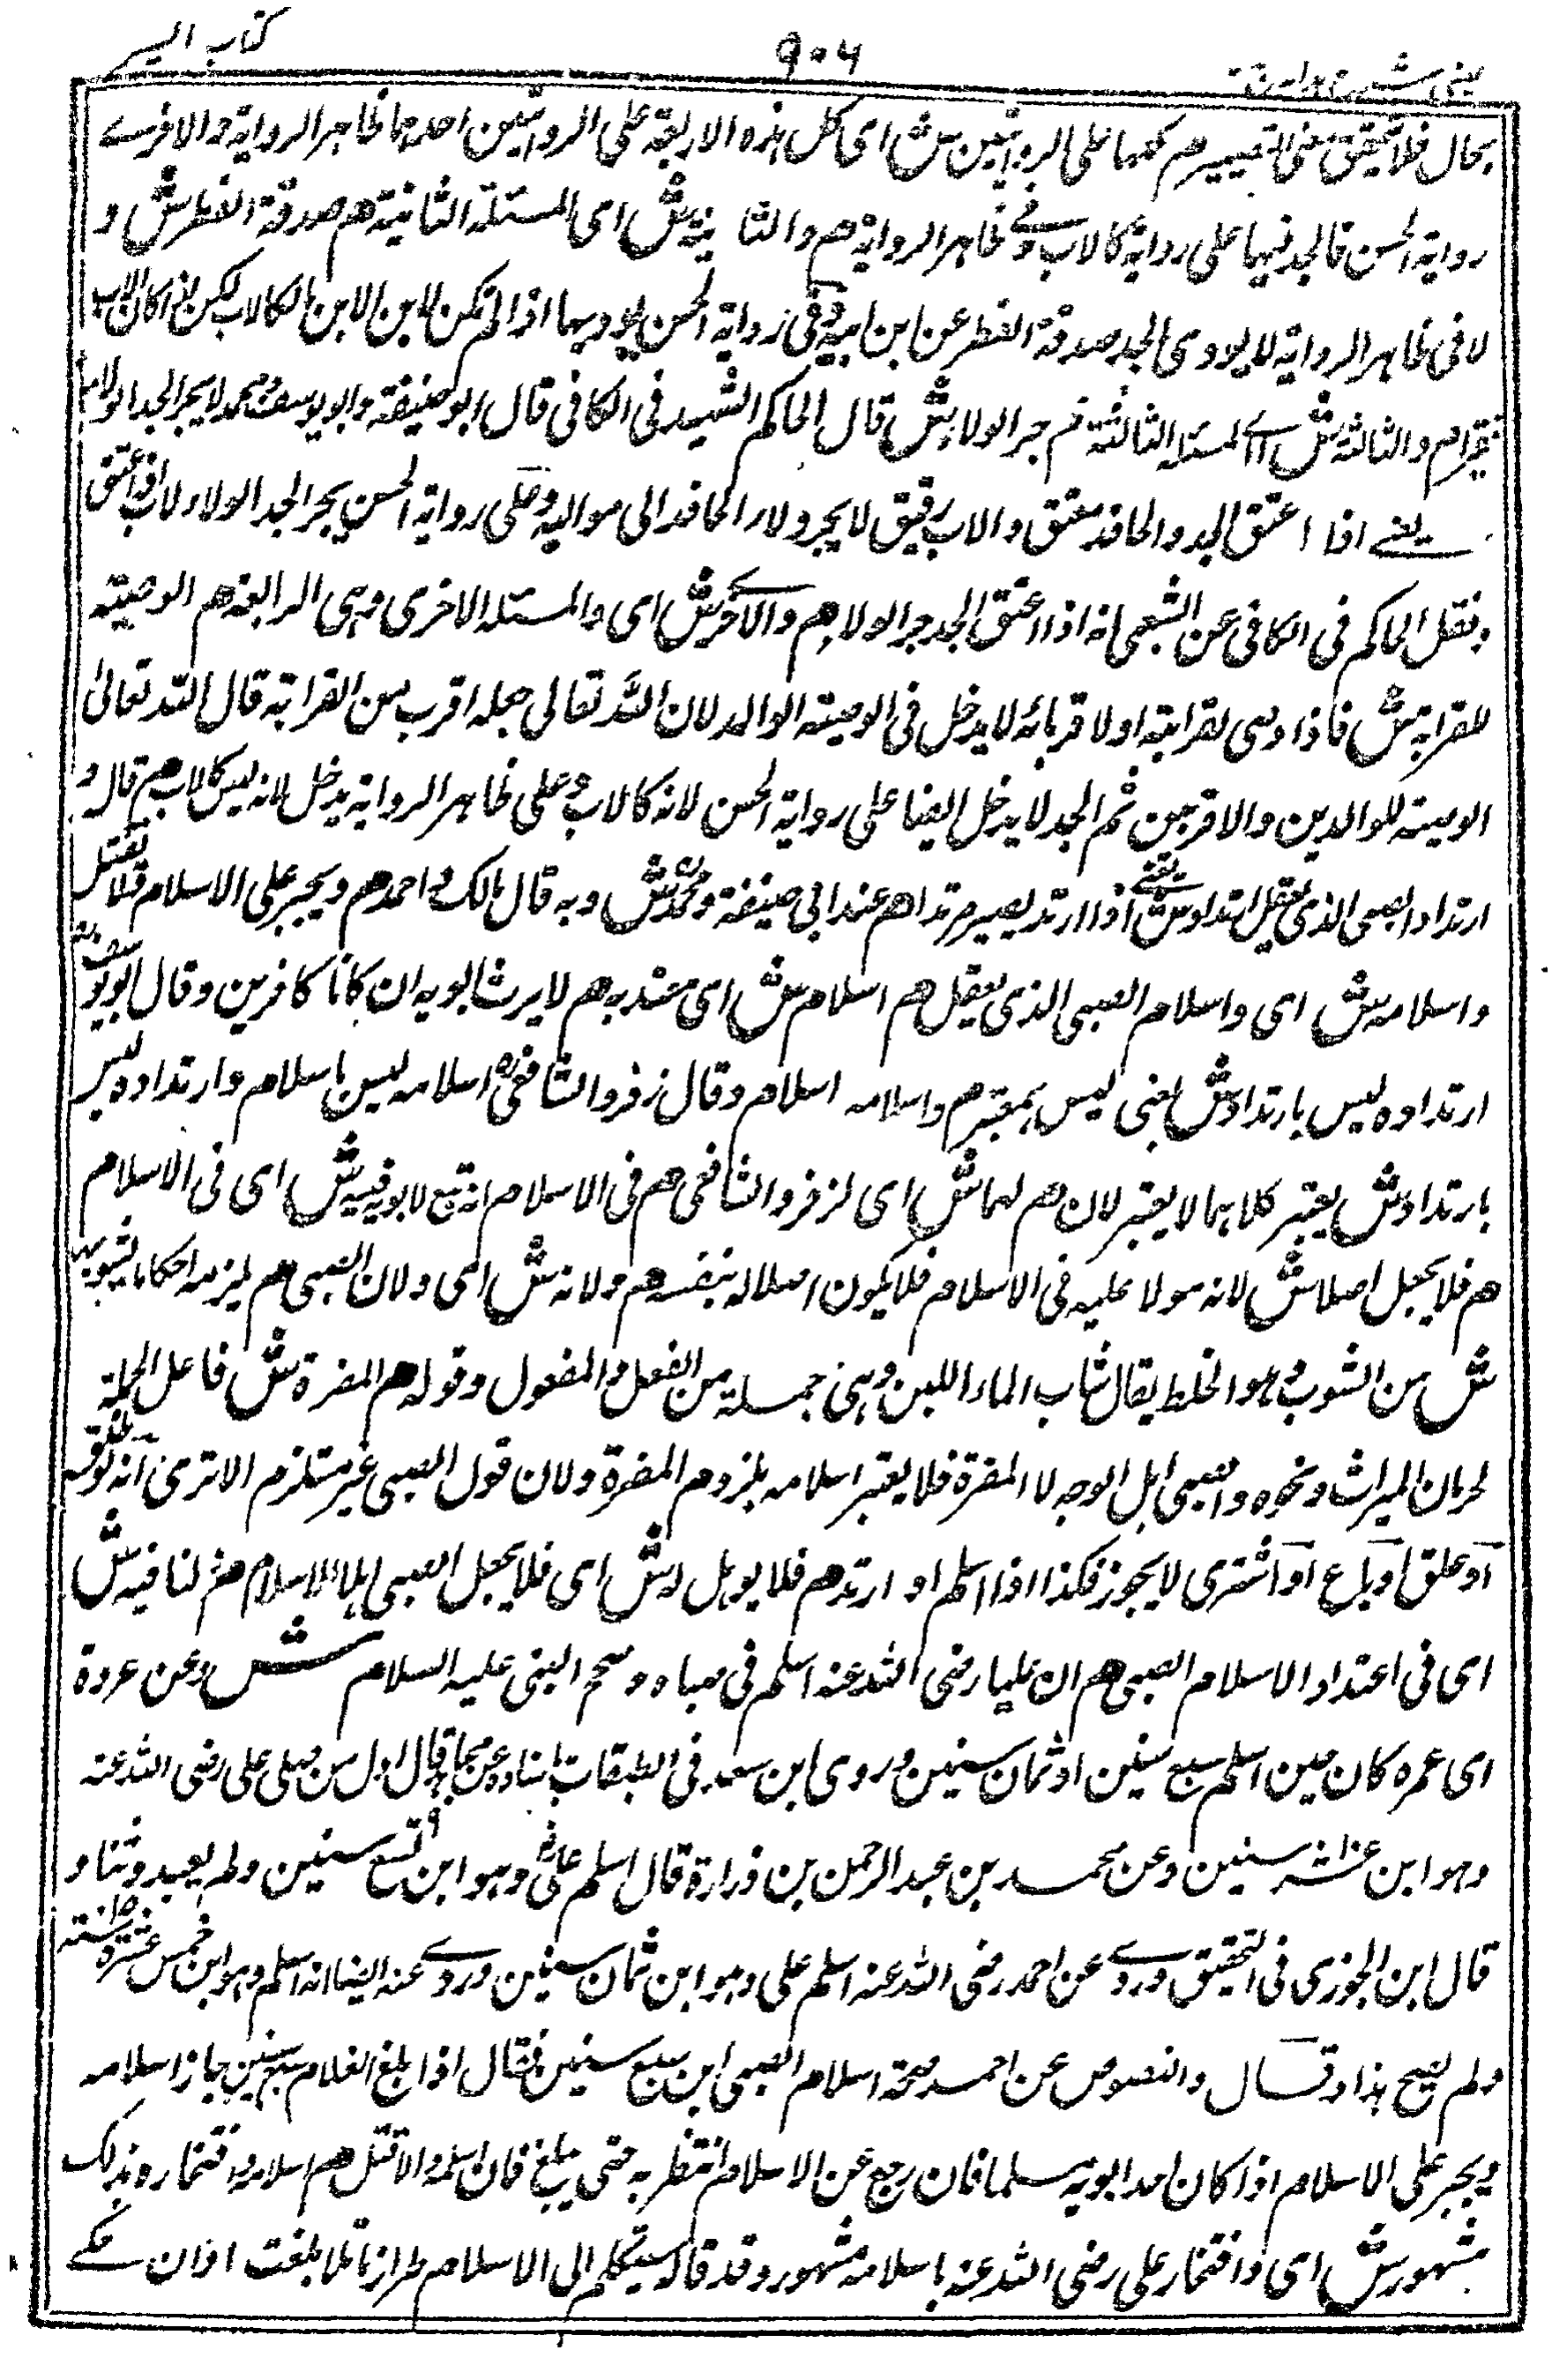 كتاب السير
٩٠٦
عينى شرح هداية
بحال فلا يتحقق معنى التبعية م كلها على الروايتين ش اى كل هذه الاربعة على الروايتين احدهما ظاهر الرواية والاخرے
رواية الحسن فالجد فيها على رواية كالاب وفے ظاهر الرواية هم والثانية ش اى المسئلة الثانية هم صدقة الفطر ش و
لا فى ظاهر الرواية لا يودى الجد صدقة الفطر عن ابن ابنه وفى رواية الحسن يوديها اذا لم يكن لابن الابن كالاب لكن اذا كان الاب
فقيرا م والثالثة ش اے المسئلة الثالثة م جر الولاء ش قال الحاكم الشهيد فى الكافى قال ابو حنيفة وابو يوسف ومحمد لا يجر الجد الولاء
يعنے اذا اعتق الجد والحافد معتق والاب رقيق لا يجر ولاء الحافد الى مواليه وعلى رواية الحسن يجر الجد الولاء كالاب اذا عتق
ونقل الحاكم فى الكافى عن الشعبى انه اذا اعتق الجد جر الولاء هم والاخرے ش اى والمسئلة الاخرى وهى الرابعة هم الوصية
للقرابة ش فاذا اوصى لقرابته او لاقربائه لا يدخل فى الوصية الوالد لان الله تعالى جعله اقرب من القرابة قال الله تعالىٰ
الوصية للوالدين والاقربين ثم الجد لا يدخل ايضا على رواية الحسن لانه كالاب وعلى ظاهر الرواية يدخل لانه ليس كالاب هم قال و
ارتداد الصبى الذى يعقل ارتداد ش يعنے اذا ارتد يصير مرتدا هم عند ابى حنيفة ومحمد ش وبه قال مالك واحمد هم ويجبر على الاسلام ولا يقتل
واسلامه ش اى واسلام الصبى الذى يعقل هم اسلام ش اى معتد به هم لا يرث ابويه ان كانا كافرين وقال ابو يوسف
ارتداده ليس بارتداد ش يعنى ليس بمعتبر م واسلامه اسلام وقال زفر والشافعى اسلامه ليس باسلام وارتداده ليس
بارتداد ش يعتبر كلاهما لا يعتبر لان هم لهما ش اى لزفر والشافعى هم فى الاسلام انه تبع لابويه فيه ش اى فى الاسلام
هم فلا يجعل اصلا ش لانه مولا عليه فى الاسلام فلا يكون اصلا له بنفسه هم ولانه ش اى ولان الصبى هم يلزمه احكاما يشوبها
ش من الشوب وهو الخلط يقال شاب الماء اللبن وهى جملة من الفعل والمفعول وقوله هم المضرة ش فاعل الجملة
لحرمان الميراث ونحوه والصبى اهل الوجه لا المضرة فلا يعتبر اسلامه بلزوم المضرة ولان قول الصبى غير مستلزم الا ترى انه لو طلق
او علق او باع او اشترى لا يجوز فكذا اذا اسلم او ارتد هم فلا يوهل له ش اى فلا يجعل الصبى اهلا للاسلام م ولنا فيه ش
اى فى اعتداد الاسلام الصبى هم ان عليا رضى الله عنه اسلم فى صباه وصح النبى عليه السلام ش وعن عروة
اى عمره كان حين اسلم سبع سنين او ثمان سنين وروى ابن سعد فى الطبقات باسناده عن مجاهد قال اول من صلى على رضى الله عنه
وهو ابن عشر سنين وعن محمد بن عبد الرحمن بن زرارة قال اسلم على وهو ابن تسع سنين ولم يعبد وثنا و
قال ابن الجوزى فى التحقيق وروے عن احمد رضى الله عنه اسلم على وهو ابن ثمان سنين وروے عنه ايضا انه اسلم وهو ابن خمس عشرة سنة
ولم يصح هذا وقال والنصوص عن احمد صحة اسلام الصبى ابن سبع سنين فقال اذا بلغ الغلام سبع سنين جاز اسلامه
ويجبر على الاسلام اذا كان احد ابويه مسلما فان رجع عن الاسلام انتظر به حتى يبلغ فان اسلم والا قتل هم اسلامه وافتخاره بذلك
مشهور ش اى وافتخار على رضى الله عنه باسلامه مشهور وقد قال سبقتكم الى الاسلام طرا زمانا ما بلغت اوان حكے